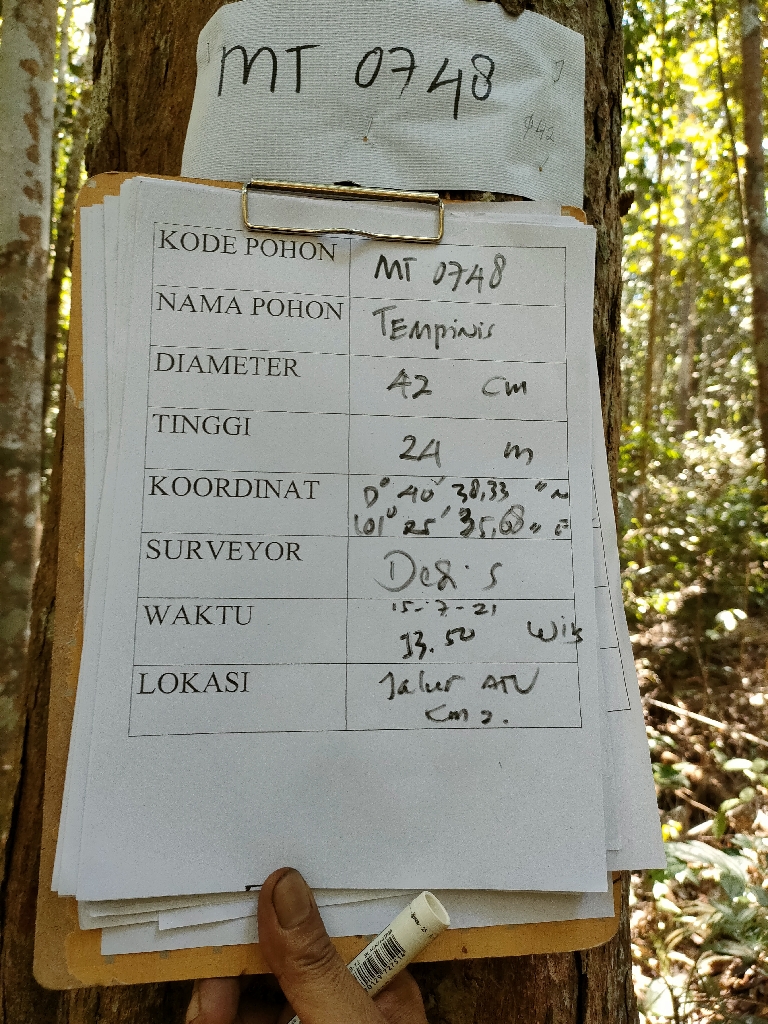 MT 0748
φ42
KODE POHON MT 0748
NAMA POHON TEmpinis
DIAMETER 42 cm
TINGGI 24 m
KOORDINAT 0° 40' 38,33 "N
101° 25' 35,68 " E
SURVEYOR
WAKTU 15-7-21
13.50 Wib
LOKASI Jalur ATV
Km 2.